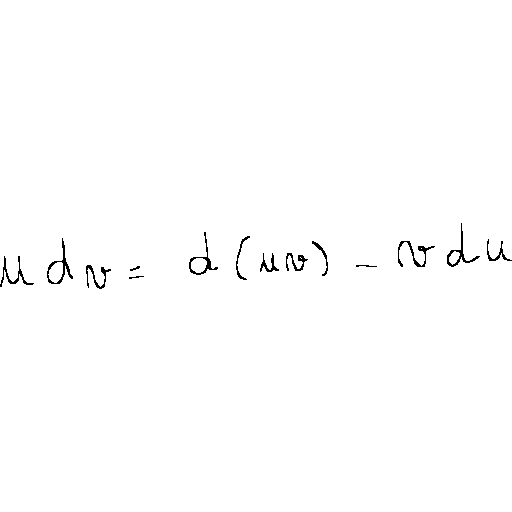 u dv = d(uv) - v du